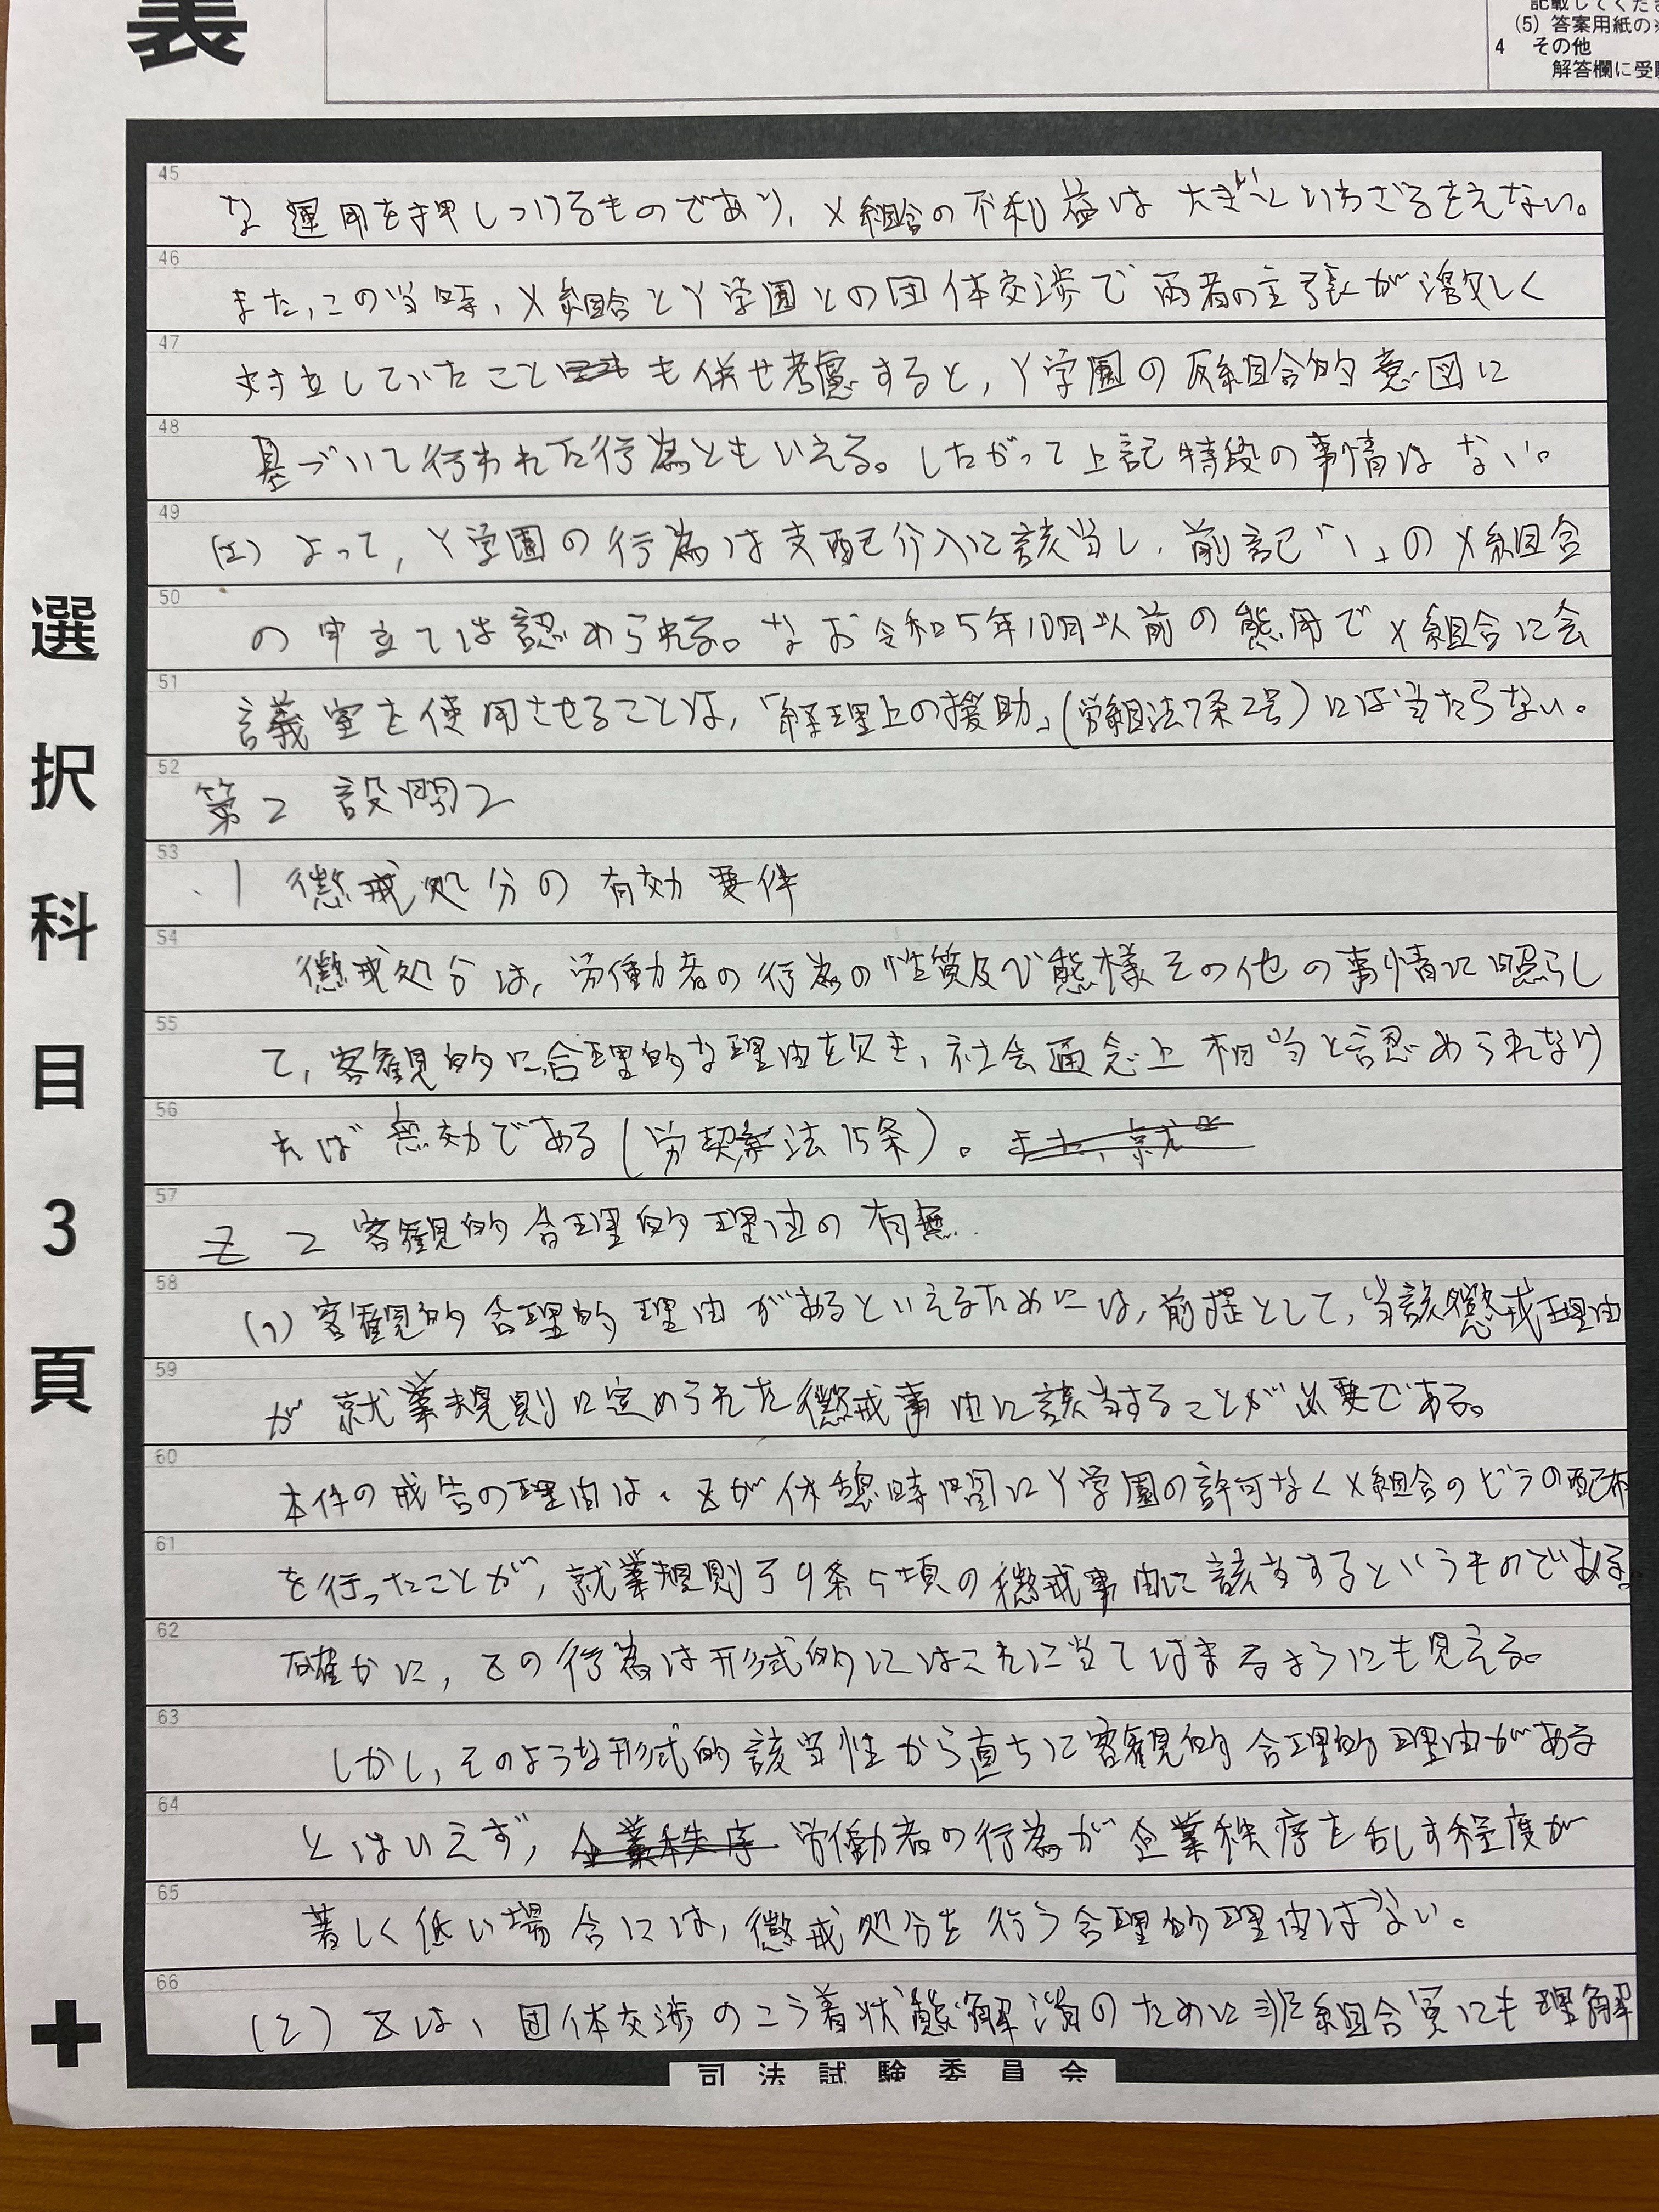 表
記載してくださ
(5) 答案用紙の
4 その他
解答欄に受験
選択科目3頁
45
な運用を押しつけるものであり、X組合の不利益は大きいといわざるをえない。
46
また、この当時、X組合とY学園との団体交渉で両者の主張が激しく
47
対立していたことも併せ考慮すると、Y学園の反組合的意図に
48
基づいて行われた行為ともいえる。したがって上記特段の事情はない。
49
(エ) よって、Y学園の行為は支配介入に該当し、前記「1」のX組合
50
の申立ては認められる。なお令和5年10月以前の態用でX組合に会
51
議室を使用させることは、「経理上の援助」(労組法7条2号)には当たらない。
52
第2 設問2
53
1 懲戒処分の有効要件
54
懲戒処分は、労働者の行為の性質及び態様その他の事情に照らし
55
て、客観的に合理的な理由を欠き、社会通念上相当と認められなけ
56
れば無効である(労契法15条)。また、就
57
2 2 客観的合理的理由の有無
58
(1) 客観的合理的理由があるといえるためには、前提として、当該懲戒理由
59
が就業規則に定められた懲戒事由に該当することが必要である。
60
本件の戒告の理由は、Zが休憩時間にY学園の許可なくX組合のビラの配布
61
を行ったことが、就業規則79条5項の懲戒事由に該当するというものである。
62
確かに、Zの行為は形式的にはこれに当てはまるようにも見える。
63
しかし、そのような形式的該当性から直ちに客観的合理的理由がある
64
とはいえず、企業秩序 労働者の行為が企業秩序を乱す程度が
65
著しく低い場合には、懲戒処分を行う合理的理由はない。
66
(2) Zは、団体交渉のこう着状態解消のために非組合員にも理解
司法試験委員会